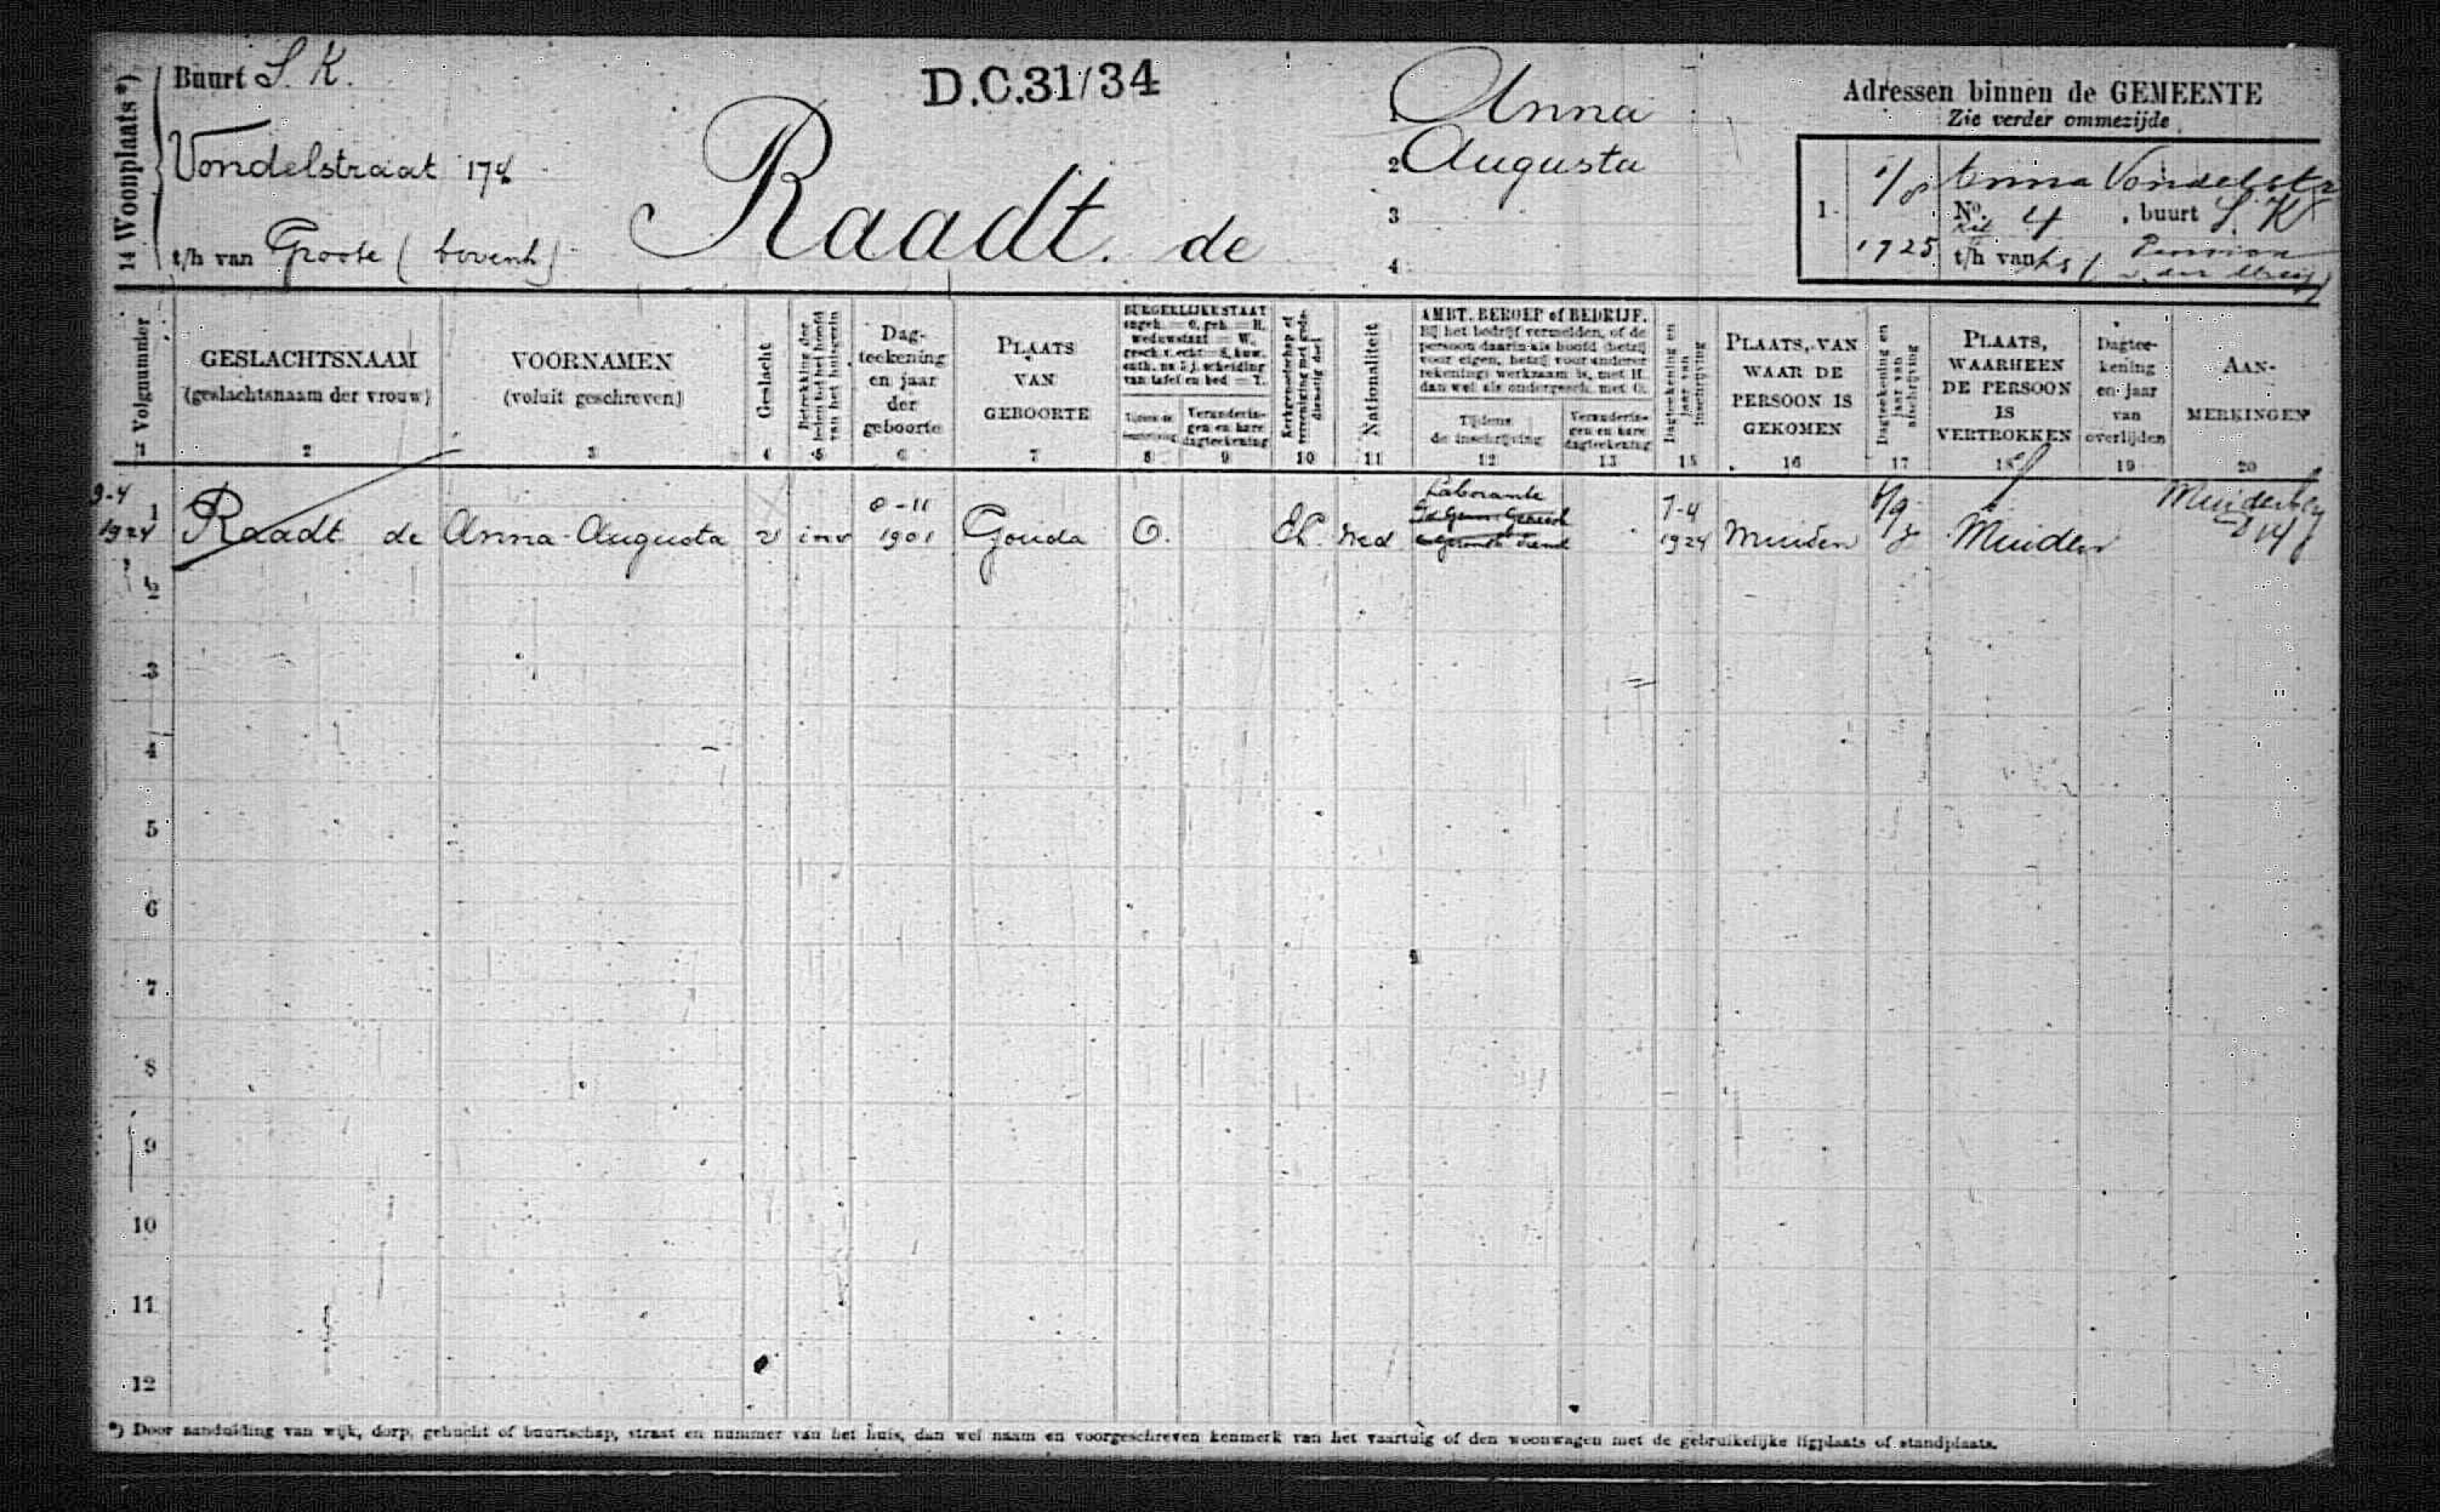 Buurt S. K.
D.C.31/34
14 Woonplaats *)
Vondelstraat 174
t/h van Groote (bovenh)
Raadt. de
1 Anna
2 Augusta
3
4
Adressen binnen de GEMEENTE
Zie verder ommezijde
1. 1/8 1925 Anna Vondelstr
No. 4, buurt S. K
t/h van hs (Pension
Volgnummer 1
GESLACHTSNAAM (geslachtsnaam der vrouw) 2
VOORNAMEN (voluit geschreven) 3
Geslacht 4
Betrekking der leden tot het hoofd van het huisgezin 5
Dagteekening en jaar der geboorte 6
PLAATS VAN GEBOORTE 7
BURGERLIJKE STAAT
ongeh. = O, geh. = H.
weduwstaat = W.
gesch. v. echt = S, kuw.
onth. na 5 j. scheiding
van tafel en bed = T.
Tijdens de inschrijving 8
Veranderingen en hare dagteekening 9
Kerkgenootschap of vereeniging met godsdienstig doel 10
Nationaliteit 11
AMBT, BEROEP of BEDRIJF.
Bij het bedrijf vermelden, of de
persoon daarin als hoofd (hetzij
voor eigen, hetzij voor anderer
rekening) werkzaam is, met H.
dan wel als ondergesch. met O.
Tijdens de inschrijving 12
Veranderingen en hare dagteekening 13
Dagteekening en jaar van inschrijving 15
PLAATS, VAN WAAR DE PERSOON IS GEKOMEN 16
Dagteekening en jaar van afschrijving 17
PLAATS, WAARHEEN DE PERSOON IS VERTROKKEN 18
Dagteekening en jaar van overlijden 19
AANMERKINGEN 20
9-4 1924 1 Raadt de Anna Augusta v inw 8-11 1901 Gouda O. EL Ned Laborante 7-4 1924 Muiden Muiden Muiderberg 14
2
3
4
5
6
7
8
9
10
11
12
*) Door aanduiding van wijk, dorp, gehucht of buurtschap, straat en nummer van het huis, dan wel naam en voorgeschreven kenmerk van het vaartuig of den woonwagen met de gebruikelijke ligplaats of standplaats.